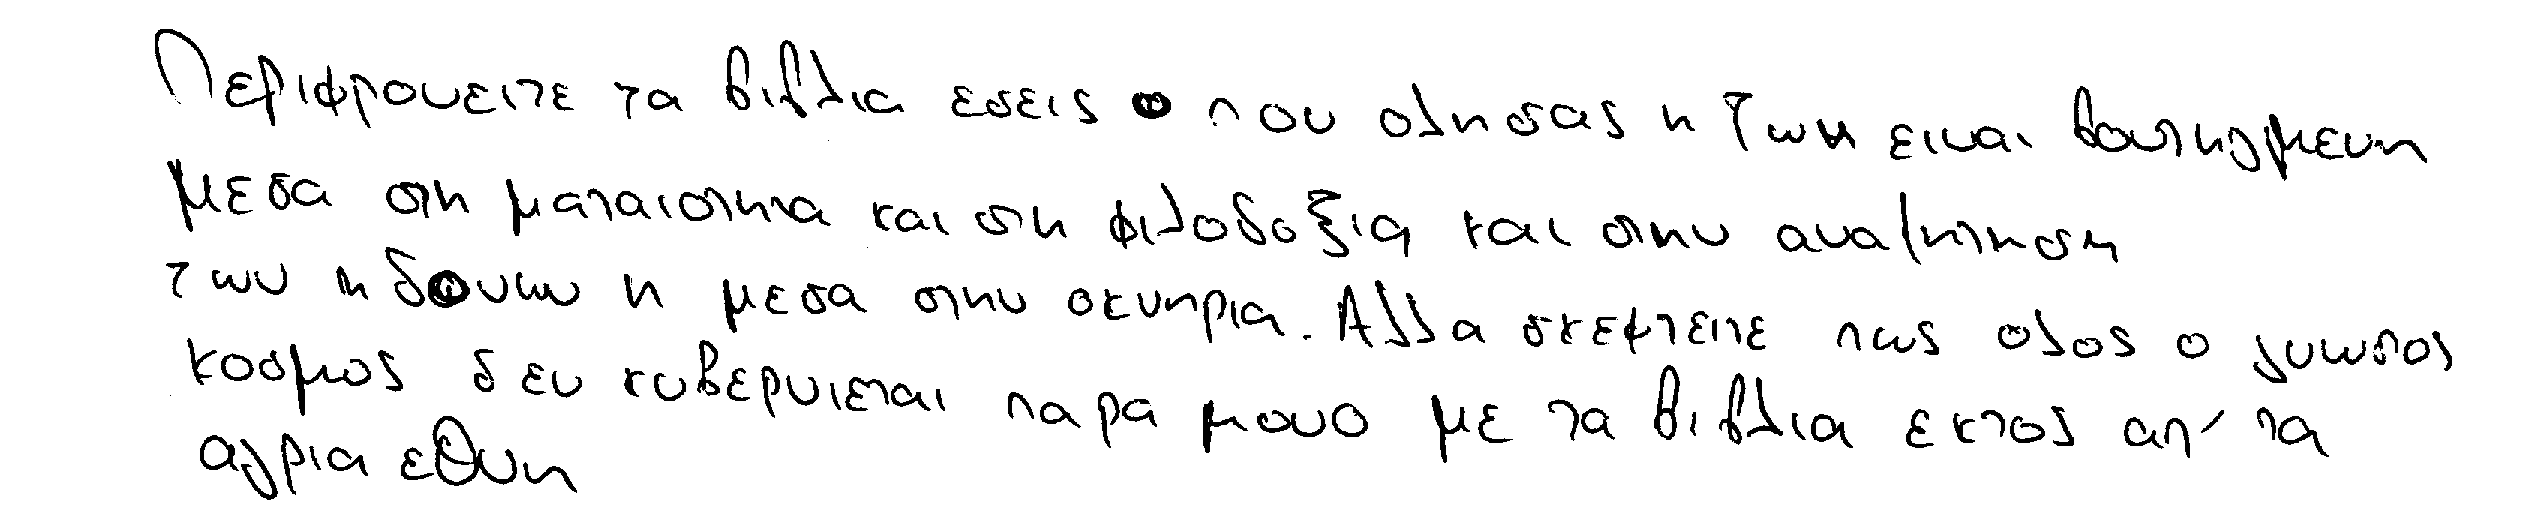 Περιφρονειτε τα βιβλια εσεις που ολη σας η ζωη ειναι βουτηγμενη
μεσα στη ματαιοτητα και στη φιλοδοξια και στην αναζητηση
των ηδονων η μεσα στην οκνηρια. Αλλα σκεφτειτε πως ολος ο γνωστος
κοσμος δεν κυβερνιεται παρα μονο με τα βιβλια εκτος απ' τα
αγρια εθνη